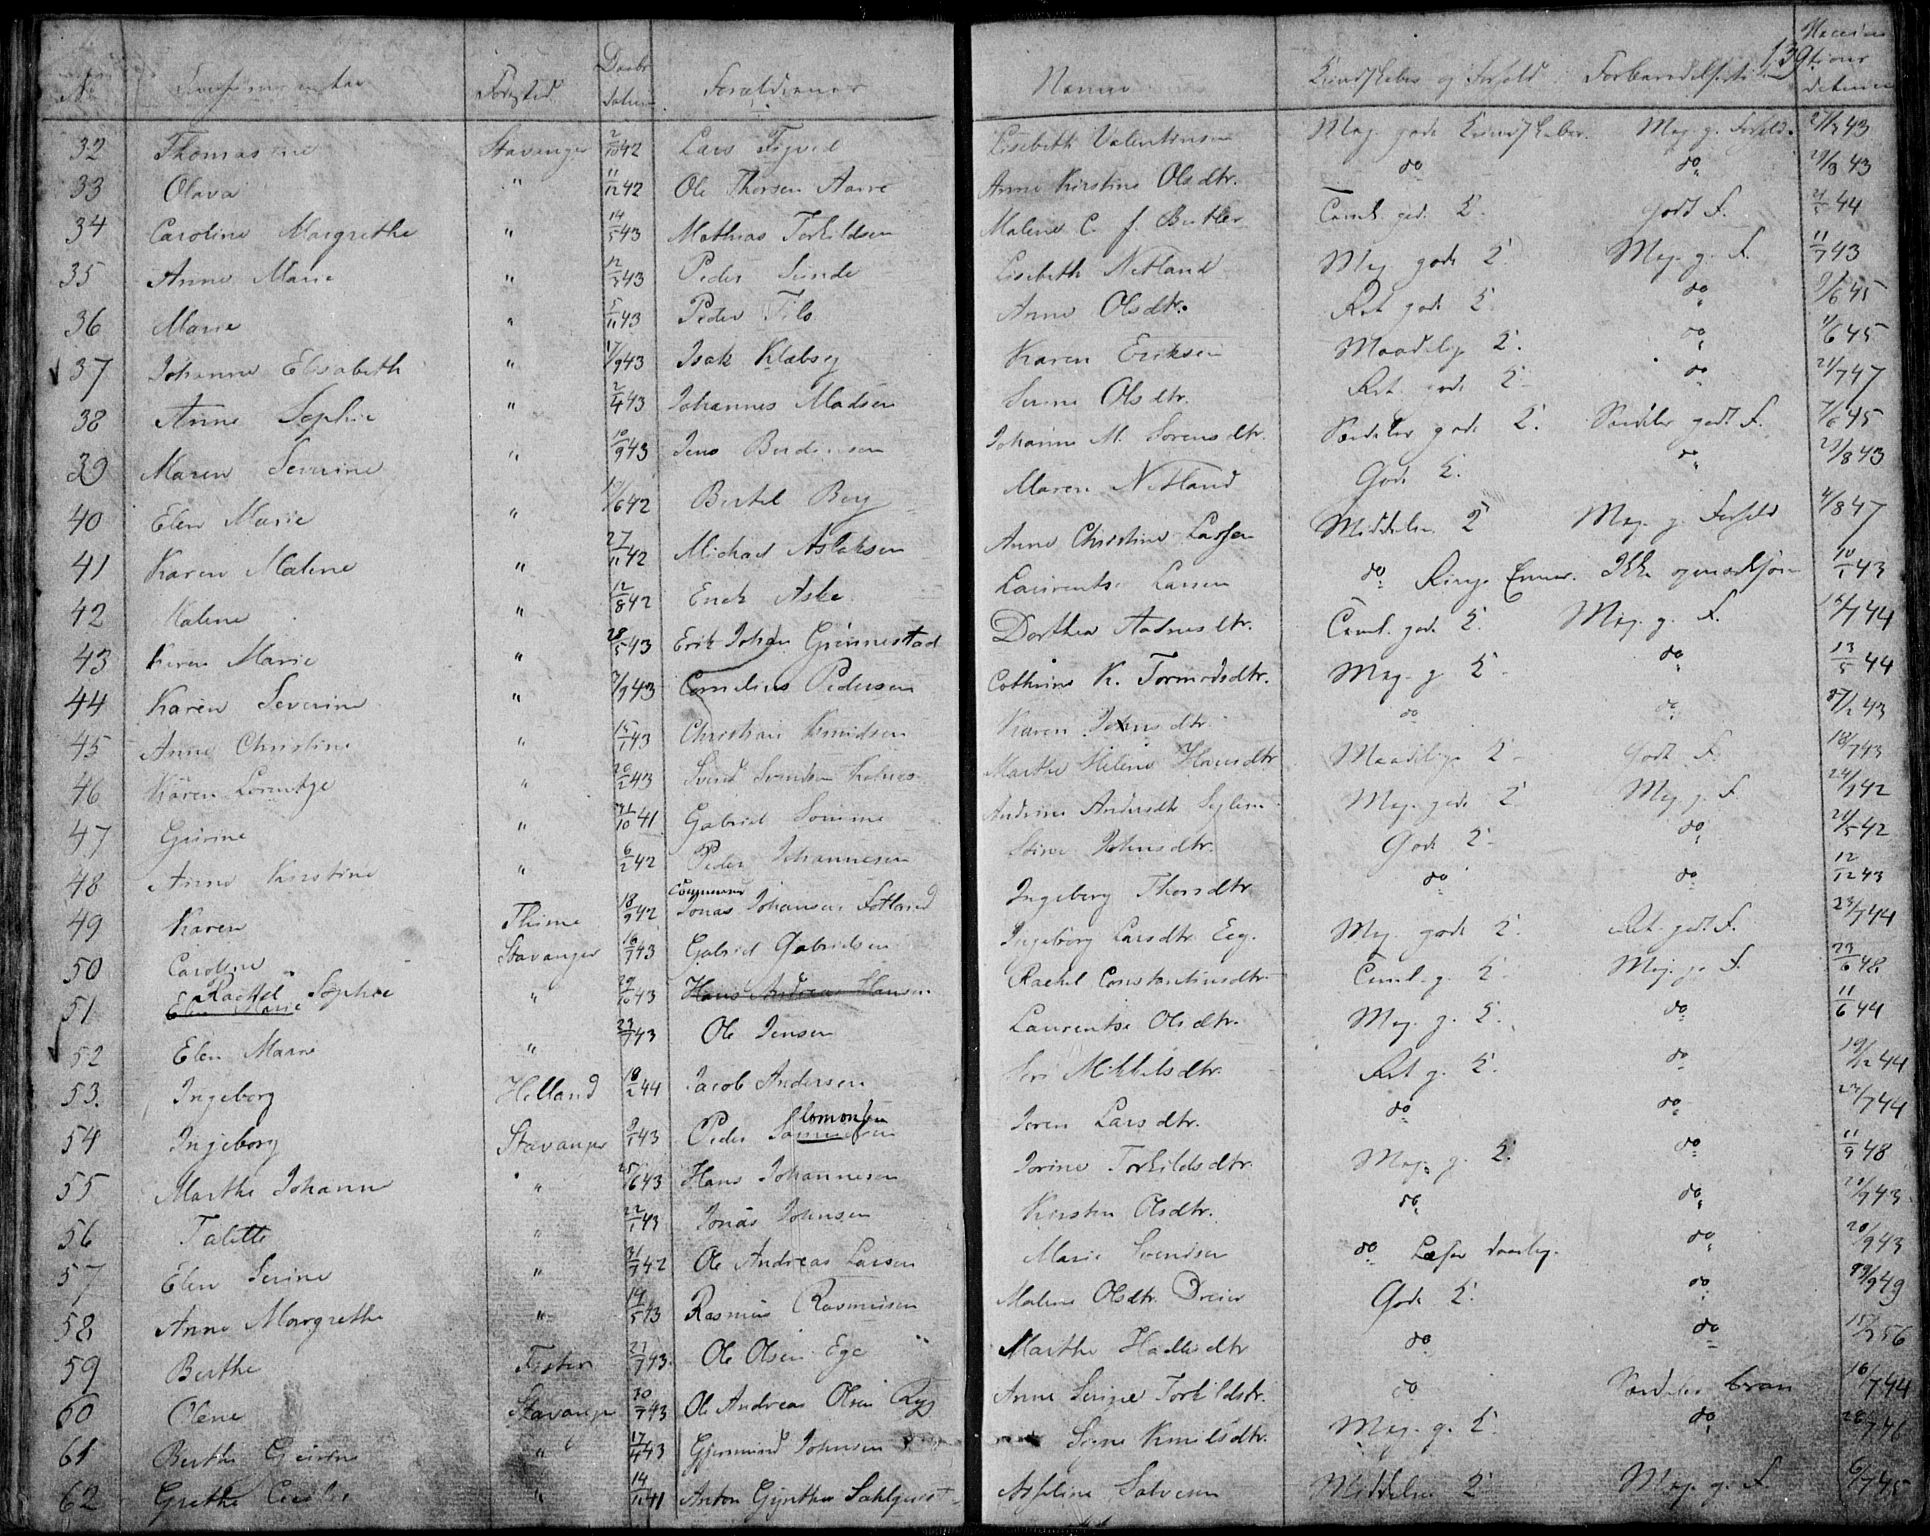 139
No Confirmanter Fødested Daabs Datum Forældrenes Navne Kundskaber og Forhold Forbaredelsestid Vaccinations datum
32 Thomasine Stavanger 2/10 42 Lars Tigved Lisebeth Valentinsen Meg. gode Kundskaber. Meg. g. Forhold. 43
33 Olava " 11/12 42 Ole Thorsen Aarre Anne Kirstine Olsdtr. do do 29/8 43
34 Caroline Margrethe " 14/5 43 Mathias Torkildsen Malene C. f. Butler Teml. god. K. godt F. 44
35 Anne Marie " 43 Peder Sunde Lisebeth Netland Meg gode K Meg. g. F. 11/7 43
36 Marie " 5/11 43 Peder Filo Anne Olsdtr. Ret gode K. do 9/6 45
37 Johanne Elisabeth " 17/9 43 Isak Klæboy Karen Eriksen Maadelige K. do 11/6 45
38 Anne Sophie " 2/4 43 Johannes Madsen Serine Olsdtr. Ret gode K do 21/7 47
39 Maren Severine " 10/9 43 Jens Johanne M. Sørensdtr. Særdeles gode K. Særdeles godt F. 7/6 45
40 Elen Marie " 19/6 42 Bertel Berg Maren Netland Gode K. do 29/8 43
41 Karen Malene " 27/11 42 Michael Aslaksen Anne Christine Larssen Middelm. K Meg. g. Forhold 4/8 47
42 Malene " 12/8 42 Enek Aske Laurentse Larsen do Ringe Evner. Ikke opmærksom 10/1 43
43 Karen Marie " 28/5 43 Erik Johan Grønnestad Dorthea Aadnesdtr. Teml. gode K. Meg. g. F. 44
44 Karen Severine " 43 Cornelius Pedersen Cathrine K. Tormodsdtr. Meg. g K. do 13/5 44
45 Anne Christine " 15/1 43 Christian Knudsen Karen Jensdtr. do do 27/2 43
46 Karen Lorentze " 20/2 43 Svend Svendsen Marthe Helene Hansdtr Maadelige K godt F. 18/7 43
47 Gurine " 31/10 41 Gabriel Somme Andrine Andersdtr Meg. gode K Meg. g. F. 42
48 Anne Kirstine " 6/2 42 Peder Johannesen Stine Johnsdtr. Gode K do 21/5 42
49 Karen Thime 18/9 42 Jonas Johansen Fotland Ingeborg Thorsdtr do do 12/12 43
50 Caroline Stavanger 16/7 43 Gabriel Gabrielsen Ingeborg Larsdtr. Eeg. Meg. gode K. Ret godt F. 23/7 44
51 Rachel Sophie Elen Marie " 29/10 43 Hans Andreas Hansen Rachel Constantinsdtr. Teml. g. K Meg. g. F. 23/6 48
52 Elen Marie " 23/7 43 Ole Jensen Laurentse Olsdtr. Meg. g. K. do 11/6 44
53. Ingeborg Helland 18/2 44 Jacob Andersen Siri Mikkelsdtr. Ret g. K. do 19/12 44
54 Ingeborg Stavanger 9/1 43 Peder Salomonsen Soren Larsdtr. do do 27/7 44
55 Marthe Johanne " 25/6 43 Hans Johannesen Jorine Torkildsdtr. Meg. g. K. do 11/9 48
56 Talette " 22/1 43 Jonas Johnsen Kirsten Olsdtr. do do 43
57 Elen Serine " 31/7 42 Ole Andreas Larsen Marie Svendsen do Læser daarlig. do 20/9 43
58 Anne Margrethe " 19/5 43 Rasmus Rasmussen Malene Olsdtr. Dreier Gode K. do 49
59 Berthe Fister 27/7 43 Ole Olsen Ege Marthe Hadlesdtr do do 15/7 56
60 Olene Stavanger 30/7 43 Ole Andreas Olsen Ryg Anne Serine Torkildsdtr. do Særdeles bran 16/7 44
61 Berthe Gurine " 17/4 43 Gjermund Johnsen Signe Knudsdtr. Meg. g. K. do 46
62 Grethe Cecilie " 14/11 41 Anton Gynther Sahlquist Asseline Salvesen Middelm. K Meg. g. F. 6/7 45